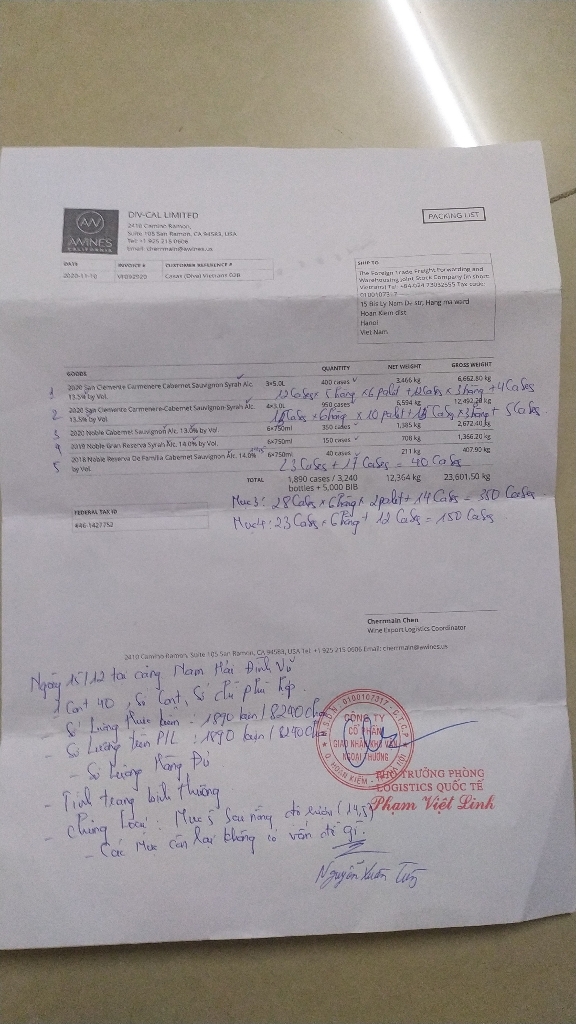 AW
AWINES
CALIFORNIA
DIV-CAL LIMITED
2410 Camino Ramon,
Suite 105 San Ramon, CA 94583, USA
Tel: +1 925 215 0606
Email: cherrmain@awines.us
PACKING LIST
DATE INVOICE # CUSTOMER REFERENCE #
2020-11-10
SHIP TO
The Foreign Trade Freight Forwarding and
Warehousing Joint Stock Company (in short:
Vietrans) Tel: +84 024 73032555 Tax code:
0100107317
15 Bis Ly Nam De str, Hang ma ward
Hoan Kiem dist
Hanoi
Viet Nam
GOODS QUANTITY NET WEIGHT GROSS WEIGHT
1 2020 San Clemente Carmenere Cabernet Sauvignon Syrah Alc. 3×5.0L 400 cases 3,466 kg 6,662.80 kg
13.5% by Vol.
12 Cases × 5 hàng × 6 palet + 12 Cases × 3 hàng + 4 Cases
2 2020 San Clemente Carmenere-Cabernet Sauvignon-Syrah Alc. 4×5.0L 950 cases 6,594 kg
13.5% by Vol.
3 2020 Noble Cabernet Sauvignon Alc. 13.0% by Vol. 6×750ml 350 cases 1,385 kg 2,672.40 kg
4 2018 Noble Gran Reserva Syrah Alc. 14.0% by Vol. 6×750ml 150 cases 708 kg 1,366.20 kg
5 2018 Noble Reserva De Familia Cabernet Sauvignon Alc. 14.0% 6×750ml 40 cases 211 kg 407.90 kg
by Vol.
23 Cases + 17 Cases = 40 Cases
TOTAL 1,890 cases / 3,240 12,364 kg 23,601.50 kg
bottles + 5,000 BIB
Mục 3: 28 Cases × 6 hàng × 2 palet + 14 Cases = 350 Cases
Mục 4: 23 Cases × 6 hàng + 12 Cases = 150 Cases
FEDERAL TAX ID
#46-1427752
Cherrmain Chen
Wine Export Logistics Coordinator
2410 Camino Ramon, Suite 105 San Ramon, CA 94583, USA Tel: +1 925 215 0606 Email: cherrmain@awines.us
Ngày 15/12 tại cảng Nam Hải Đình Vũ
1 Cont 40, Số Cont, Số chì phù hợp.
- Số lượng thực kiện: 1890 kiện / 8240 chai
- Số lượng trên P/L: 1890 kiện / 8240 chai
- Số lượng hàng Đủ
- Tình trạng bình thường
- Chủng loại: Mục 5 sau nồng độ
- Các Mục còn lại không có vấn đề gì.
Nguyễn Xuân
M.S.D.N: 0100107317 - C.T.C.P
CÔNG TY
CỔ PHẦN
GIAO NHẬN KHO VẬN
NGOẠI THƯƠNG
Q. HOÀN KIẾM - TP. HÀ NỘI
PHÓ TRƯỞNG PHÒNG
LOGISTICS QUỐC TẾ
Phạm Việt Linh